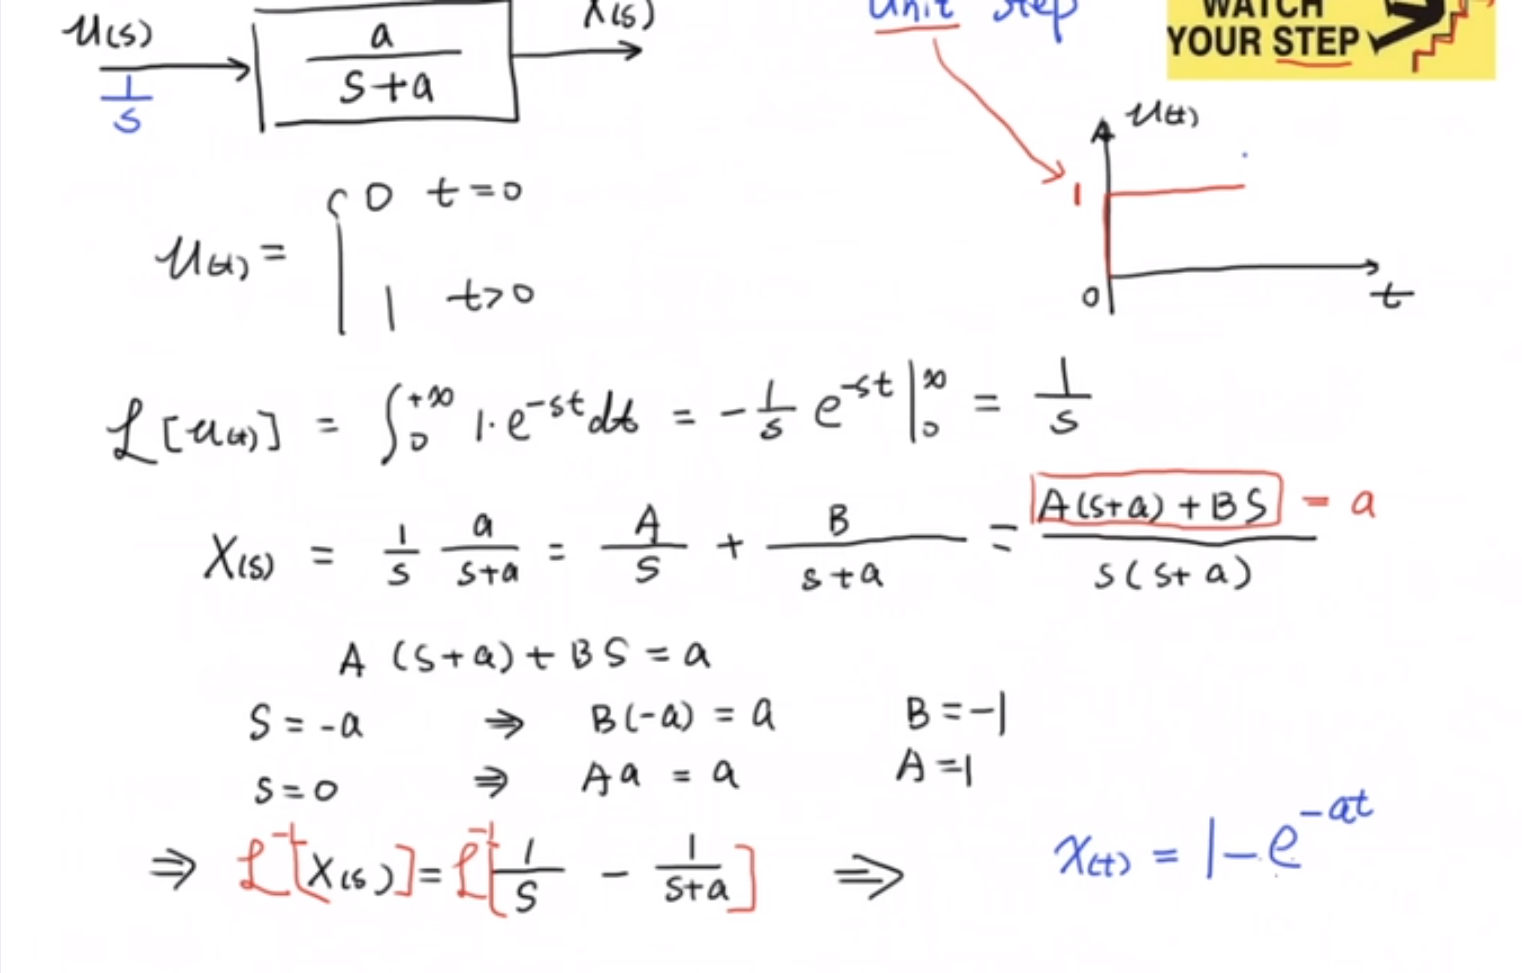 U(s) a X(s) Unit Step WATCH
1 s+a YOUR STEP
s
u(t)
1
0 t
u(t) = { 0 t=0
1 t>0
ℒ[u(t)] = ∫₀^{+∞} 1·e^{-st}dt = -1/s e^{-st}|₀^∞ = 1/s
X(s) = 1/s a/(s+a) = A/s + B/(s+a) = (A(s+a)+BS)/(s(s+a)) = a
A (s+a) + BS = a
S = -a ⇒ B(-a) = a B = -1
s=0 ⇒ Aa = a A=1
⇒ ℒ⁻¹[X(s)] = ℒ⁻¹[1/s - 1/(s+a)] ⇒ x(t) = 1-e^{-at}